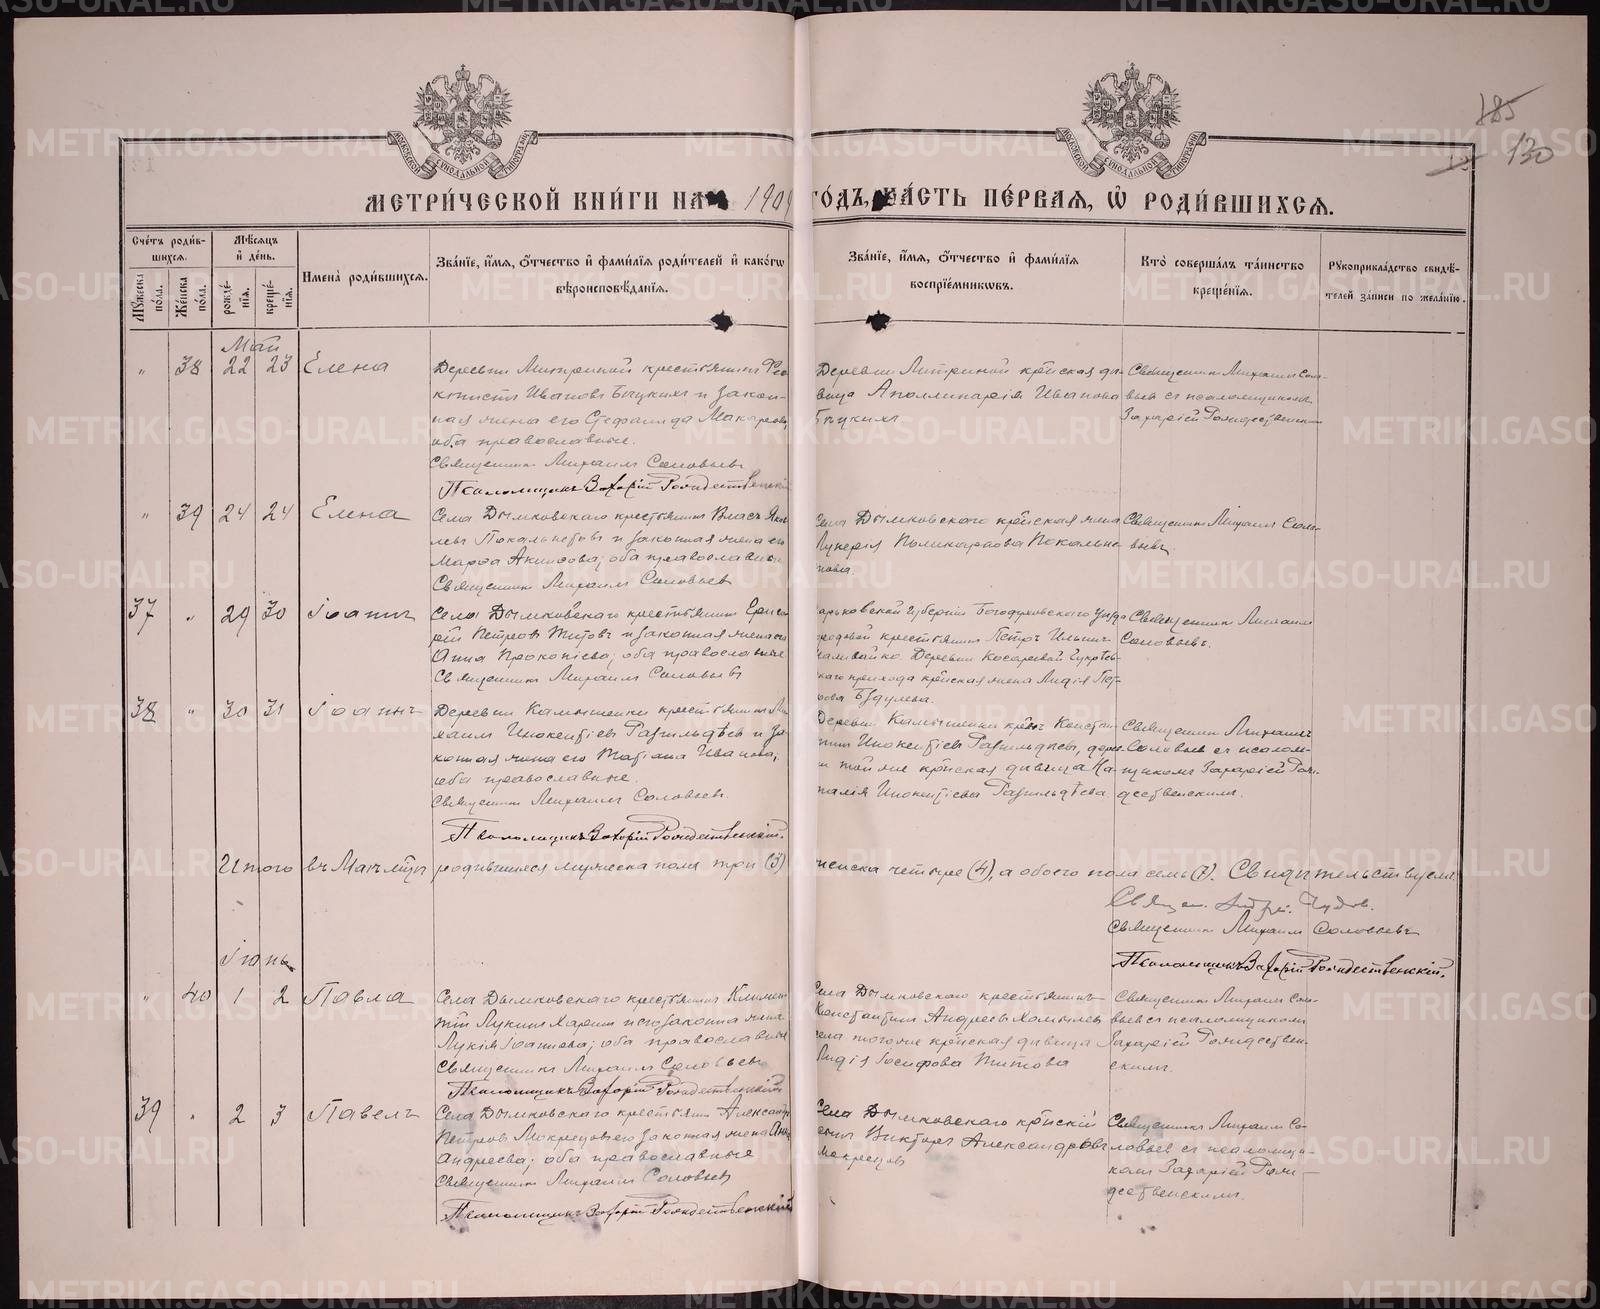 185
130
МЕТРИ́ЧЕСКОЙ КНИ́ГИ НА 1909 ГО́ДЪ, ЧА́СТЬ ПЕ́РВАЯ, Ѿ РОДИ́ВШИХСЯ.
Сче́тъ роди́в-
шихся.
Мꙋ́жеска по́ла.
Же́нска по́ла.
Мѣ́сяцъ
и҆ де́нь.
рожде́нїя.
креще́нїя.
И҆мена̀ роди́вшихся.
Зва́нїе, и҆́мя, ѻ҆́тчество и҆ фами́лїя роди́телей и҆ како́гѡ
вѣроисповѣ́данїя.
Зва́нїе, и҆́мя, ѻ҆́тчество и҆ фами́лїя
воспрїе́мникѡвъ.
Кто̀ соверша́лъ та́инство
креще́нїя.
Рꙋкоприкла́дство свидѣ́-
телей за́писи по жела́нїю.
Май
" 38 22 23 Елена
Деревни Митриной крестьянинъ
Ивановъ Быкихъ и закон-
ная жена его Макарова
оба православные.
Священникъ Михаилъ Соловьевъ
Псаломщикъ Захарій Рождественскій
Деревни Митриной кр̃нская дѣ-
вица Аполлинарія Иванова
Быкихъ
Священникъ Михаилъ Соло-
вьевъ съ псаломщикомъ
Захаріей Рождественск
" 39 24 24 Елена
Села Дымковскаго крестьянинъ Власъ Яков-
левъ и законная жена его
Марѳа Акимова; оба православные
Священникъ Михаилъ Соловьевъ
Села Дымковскаго кр̃нская жена
Лукерія Поликарпова
нова.
Священникъ Михаилъ Соло-
вьевъ.
37 " 29 30 Іоаннъ
Села Дымковскаго крестьянинъ
Петровъ Титовъ и законная жена его
Анна Прокопіева; оба православные
Священникъ Михаилъ Соловьевъ
Харьковской губерніи Богодуховского уѣзда
крестьянинъ Петръ Ильинъ
Наливайко. Деревни Косаревой
скаго прихода кр̃нская жена Лидія Пет-
рова
Священникъ Михаилъ
Соловьевъ.
38 " 30 31 Іоаннъ
Деревни Камышенки крестьянинъ Ми-
хаилъ Инокентіевъ Разгильдѣевъ и за-
конная жена его Татіана Иванова;
оба православные.
Священникъ Михаилъ Соловьевъ.
Псаломщикъ Захарій Рождественскій.
Деревни Камышенки кр̃нъ Констан-
тинъ Инокентіевъ Разгильдѣевъ, дерев-
ни той же кр̃нская дѣвица На-
талія Инокентіева Разгильдѣева.
Священникъ Михаилъ
Соловьевъ съ псалом-
щикомъ Захаріей Рож-
дественскимъ.
Итого въ Маѣ мѣсяцѣ родившихся мужеска пола три (3) женска четыре (4), а обоего пола семь (7). Свидѣтельствуемъ:
Священникъ Михаилъ Соловьевъ
Псаломщикъ Захарій Рождественскій.
Іюнь
" 40 1 2 Павла
Села Дымковскаго крестьянинъ Климен-
тій Лукинъ и его законна жена
Лукія Іоаннова; оба православные
Священникъ Михаилъ Соловьевъ
Псаломщикъ Захарій Рождественскій
Села Дымковскаго крестьянинъ
Константинъ Андреевъ
села того же кр̃нская дѣвица
Лидія Іосифова Титова
Священникъ Михаилъ Соло-
вьевъ съ псаломщикомъ
Захаріей Рождествен-
скимъ.
39 " 2 3 Павелъ
Села Дымковскаго крестьянинъ Александръ
Петровъ Мокрецовъ его законная жена Анна
Андреева; оба православные
Священникъ Михаилъ Соловьевъ
Псаломщикъ Захарій Рождественскій
Села Дымковскаго кр̃нскій
сынъ Викторъ Александровъ
Мокрецовъ
Священникъ Михаилъ Со-
ловьевъ съ псаломщи-
комъ Захаріей Рож-
дественскимъ.